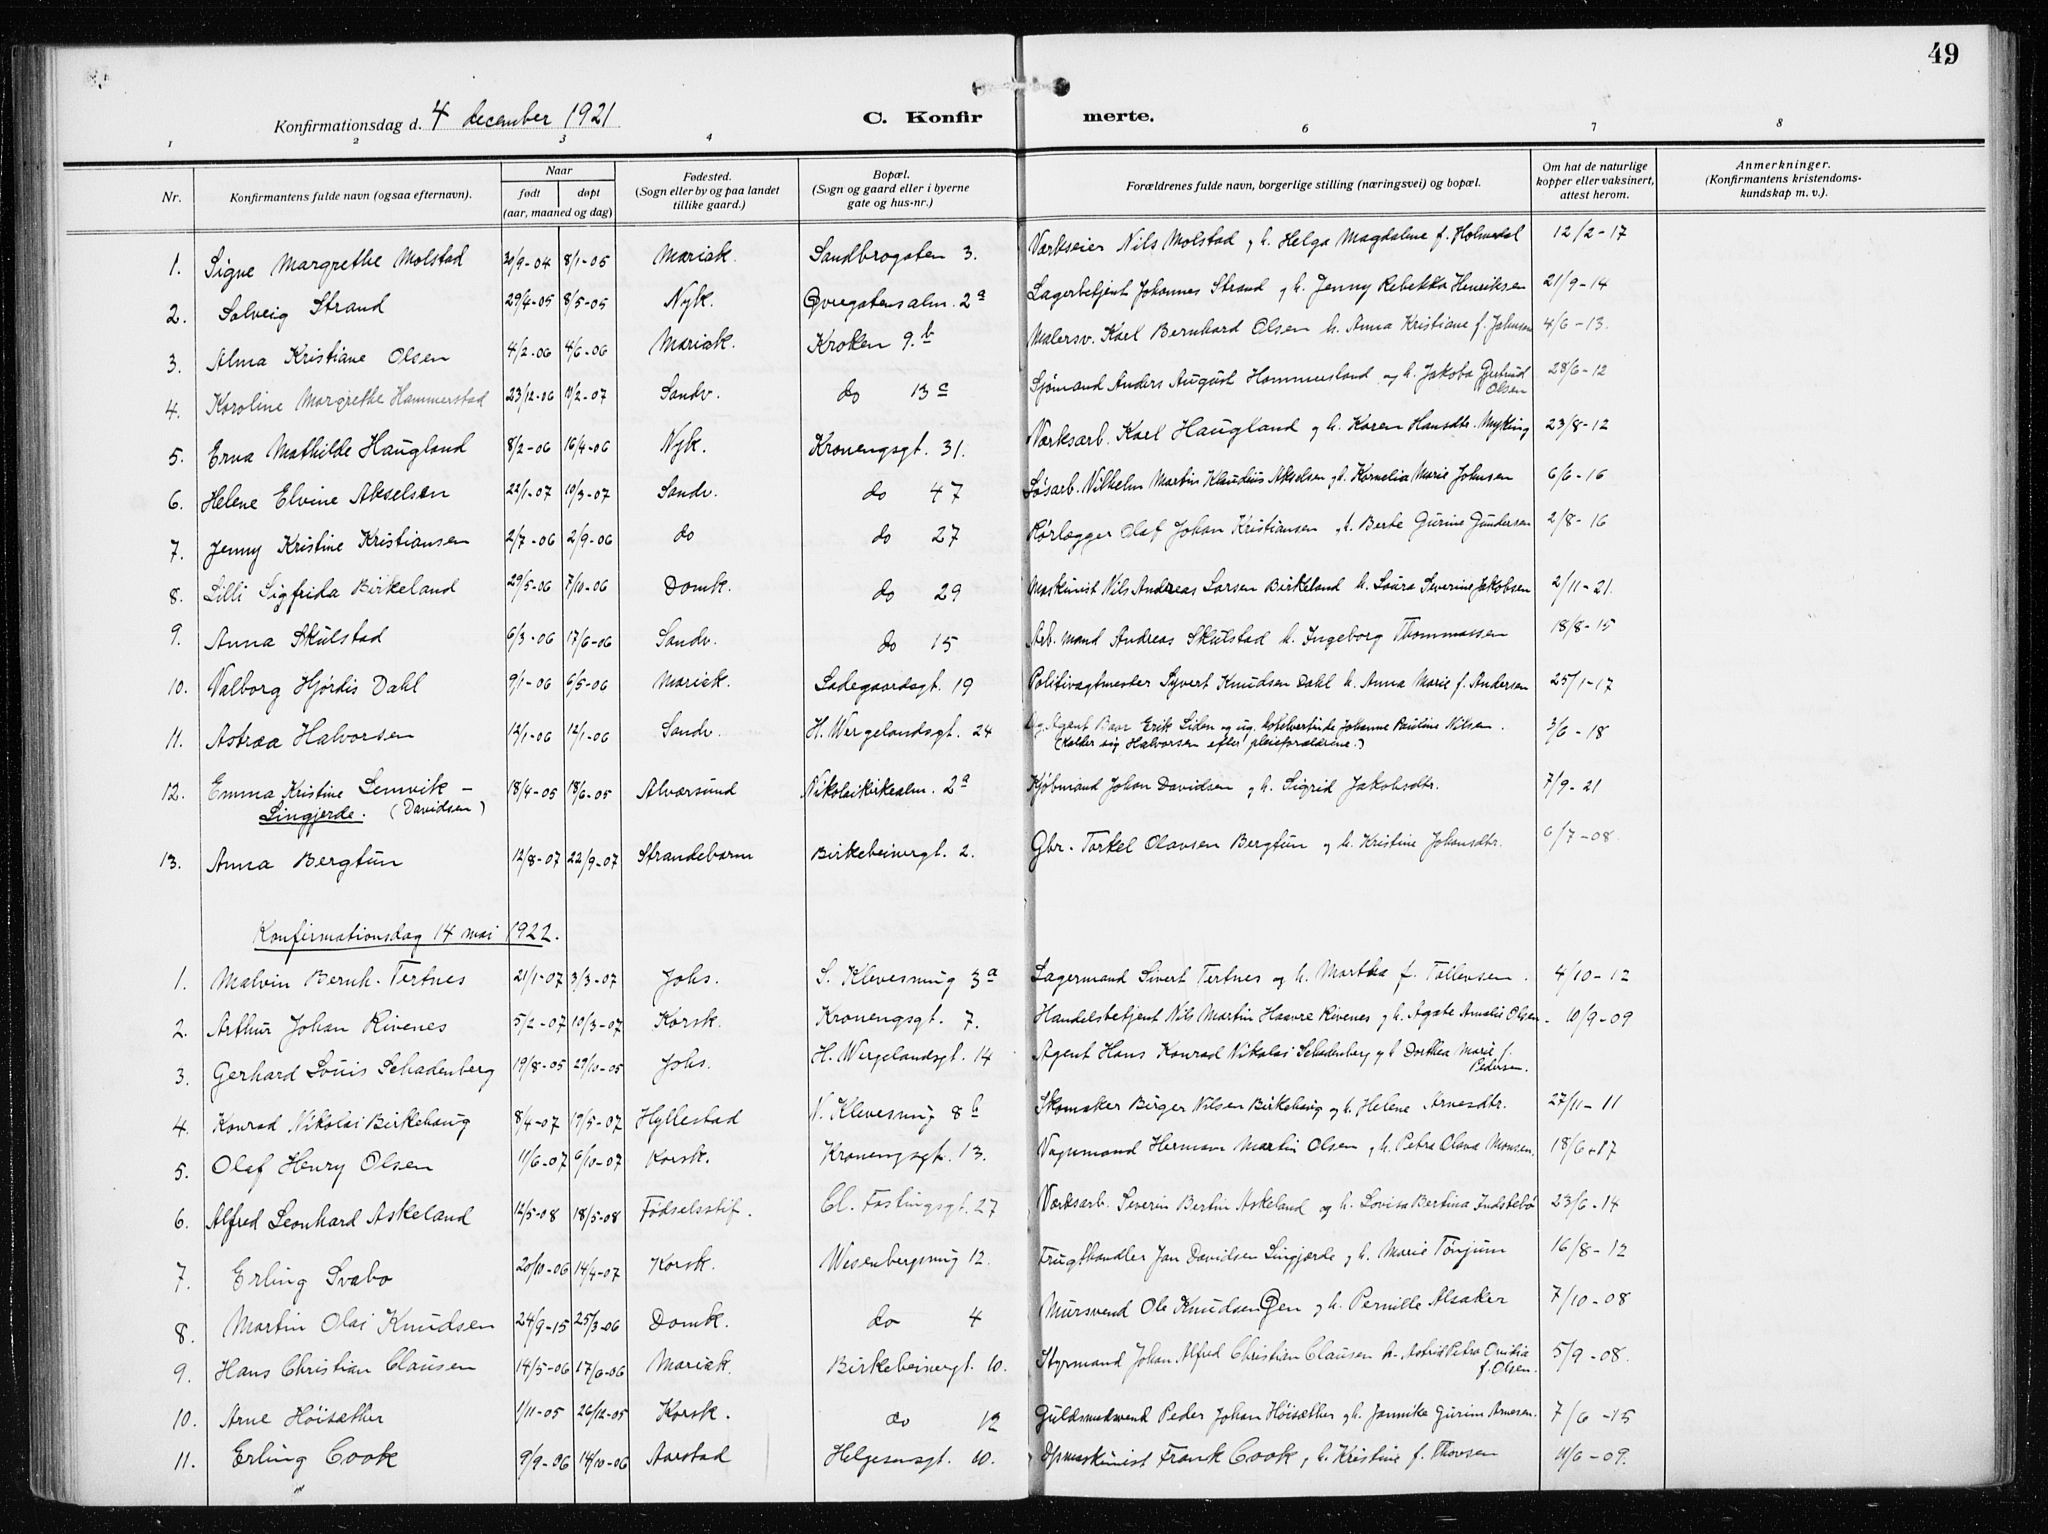 49
Konfirmationsdag d. 4 december 1921 C. Konfirmerte.
1 2 3 4 6 7 8
Nr. Konfirmantens fulde navn (ogsaa efternavn). Naar født døpt (aar, maaned og dag) Fødested. (Sogn eller by og paa landet tillike gaard.) Bopæl. (Sogn og gaard eller i byerne gate og hus-nr.) Forældrenes fulde navn, borgerlige stilling (næringsvei) og bopæl. Om hat de naturlige kopper eller vaksinert, attest herom. Anmerkninger. (Konfirmantens kristendoms-kundskap m. v.).
1. Signe Margrethe Molstad /9-04 8/1-05 Mariak. Sandbrogaten 3. Værkseier Nils Molstad og h. Helga Magdalene f. Holmedal 12/2-17
2. Solveig Strand 29/4-05 8/5-05 Nyk. Øvregatensalm. 2a Lagerbetjent Johannes Strand og h. Jenny Rebekka Henriksen 21/9-14
3. Alma Kristiane Olsen 4/2-06 4/6-06 Mariak. Kroken 9.b Malersv. Karl Bernhard Olsen h. Anna Kristiane f. Johnsen 4/6-13.
4. Karoline Margrethe Hammerstad 23/12-06 /2-07 Sandv. do 13c Sjømand Anders August Hammersland og h. Jakoba Gertrud Olsen 28/6-12
5. Erna Mathilde Haugland 8/2-06 16/4-06 Nyk. Kronengsgt. 31. Værksarb. Karl Haugland og h. Karen Hansdtr. Myking 23/8-12
6. Helene Elvine Akselsen 22/1-07 10/3-07 Sandv. do 47 Løsarb. Vilhelm Martin Klaudius Akselsen og h. Kornelia Marie Johnsen 6/6-16
7. Jenny Kristine Kristiansen 2/7-06 2/9-06 do do 27 Rørlægger Olaf Johan Kristiansen, h. Berte Gurine Gundersen 2/8-16
8. Lilli Sigfrida Birkeland 29/5-06 7/10-06 Domk. do 29 Maskinist Nils Andreas Larsen Birkeland h. Laura Severine Jakobsen 2/11-21.
9. Anna Skulstad 6/3-06 17/6-06 Sandv. do 15 Arb. mand Andreas Skulstad h. Ingeborg Thommassen 18/8-15
10. Valborg Hjørdis Dahl 9/1-06 6/5-06 Mariak. Ladegaardsgt. 19 Politivagtmester Syvert Knudsen Dahl h. Anna Marie f. Andersen 25/1-17
11. Astræa Halvorsen 12/1-06 12/1-06 Sandv. H. Wergelandsgt. 24 Ug. Agent Barr Erik Liden og ug. hotelvertinde Johanne Pauline Nilsen. 3/6-18
(Kalder sig Halvorsen efter pleieforældrene.)
12. Emma Kristine Lemvik - 18/4-05 18/6-05 Alværsund Nikolaikirkealm. 2a Kjøbmand Johan Davidsen og h. Sigrid Jakobsdtr. 7/9-21
Lingjerde. (Davidsen)
13. Anna Bergtun 12/8-07 22/9-07 Strandebarm Birkebeinergt. 2. Gbr. Torkel Olavsen Bergtun og h. Kristine Johansdtr. 6/7-08.
Konfirmationsdag 14 mai 1922.
1. Malvin Bernh. Tertnes 21/1-07 3/3-07 Johs. S. Klevesmug 3a Lagermand Sivert Tertnes og h. Martha f. Tollevsen. 4/10-12
2. Arthur Johan Rivenes 5/2-07 10/3-07 Korsk. Kronengsgt. 7. Handelsbetjent Nils Martin Haavre Rivenes og h. Agate Amalie Olsen. 10/9-09
3. Gerhard Louis Schadenberg 19/8-05 29/10-05 Johs. H. Wergelandsgt. 14 Agent Hans Konrad Nikolai Schadenberg og h Dorthea Marie f. Pedersen.
4. Konrad Nikolai Birkehaug 8/4-07 19/5-07 Hyllestad N. Klevesmug 8b Skomaker Birger Nilsen Birkehaug og h. Helene Arnesdtr. 27/11-11
5. Olaf Henry Olsen 11/6-07 6/10-07 Korsk. Kronengsgt. 13. Vognmand Herman Martin Olsen og h. Petra Olava Monsen. 18/6-17
6. Alfred Leonhard Askeland 12/5-08 18/5-08 Fødselsstif. Cl. Fastingsgt. 27 Værksarb. Severin Bertin Askeland og h. Lovisa Bertina Indstebø 23/6-14
7. Erling Svabo 20/10-06 14/4-07 Korsk. Wesenbergsmug 12. Frugthandler Jan Davidsen Lingjærde og h. Marie Tønjum 16/8-12
8. Martin Olai Knudsen 24/9-15 25/3-06 Domk. do 4 Mursvend Ole Knudsen Øen og h. Pernille Alsaker 7/10-08
9. Hans Christian Clausen 14/5-06 17/6-06 Mariak. Birkebeinergt. 10. Styrmand Johan Alfred Christian Clausen h. Astrid Petra Ovidia f. Olsen. 5/9-08.
10. Arne Høisæther 1/11-05 26/12-05 Korsk. do 12 Guldsmedsvend Peder Johan Høisæther og h. Jannike Gurine Arnesen. 7/6-15
11. Erling Cook 9/9-06 14/10-06 Aarstad Helgesensgt. 10. Opmaskinist Frank Cook, h. Kristine f. Thorsen 11/6-09.